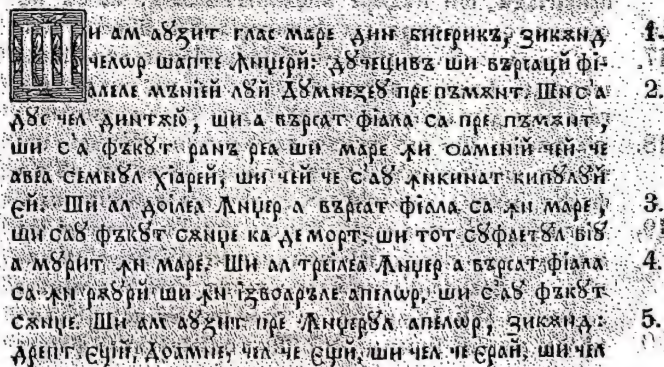 Ши ам аꙋзит глас маре дин бисерикъ, зикѫнд 1.
челѡр шапте Ꙟнџерй: дꙋчецивъ ши върсаци фі-
алеле мънїей лꙋй Дꙋмнеꙁеꙋ пре пъмѫнт. Шис'а 2.
дꙋс чел динтѫю, ши а върсат фіала са пре пъмѫнт,
ши с'а фъкꙋт ранъ реа ши маре ꙟн оаменїй чей че
авеа семнꙋл хїарей, ши чей че с'аꙋ ꙟнкинат кипꙋлꙋй
ей. Ши ал доілеа Ꙟнџер а върсат фіала са ꙟн маре, 3.
ши саꙋ фъкꙋт сѫнџе ка де морт, ши тот сꙋфлетꙋл віꙋ
а мꙋрит ꙟн маре. Ши ал треілеа Ꙟнџер а върсат фіала 4.
са ꙟн рѫꙋрй ши ꙟн ізвоаръле апелѡр, ши с'аꙋ фъкꙋт
сѫнџе. Ши ам аꙋзит пре Ꙟнџерꙋл апелѡр, зикѫнд: 5.
дрепт ещй, Доамне, чел че ещи, ши чел че ерай, ши чел